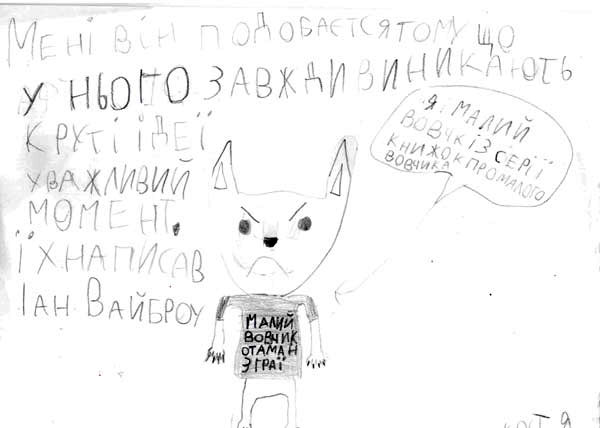 МЕНІ ВІН ПОДОБАЄТСЯ ТОМУ ЩО
У НЬОГО ЗАВЖДИ ВИНИКАЮТЬ
КРУТІ ІДЕЇ
УВАЖЛИВИЙ
МОМЕНТ.
ЇХ НАПИСАВ
ІАН ВАЙБРОУ
Я МАЛИЙ
ВОВЧК ІЗ СЕРІЇ
КНИЖОК ПРО МАЛОГО
ВОВЧИКА
МАЛИЙ
ВОВЧИК
ОТАМАН
ЗГРАЇ